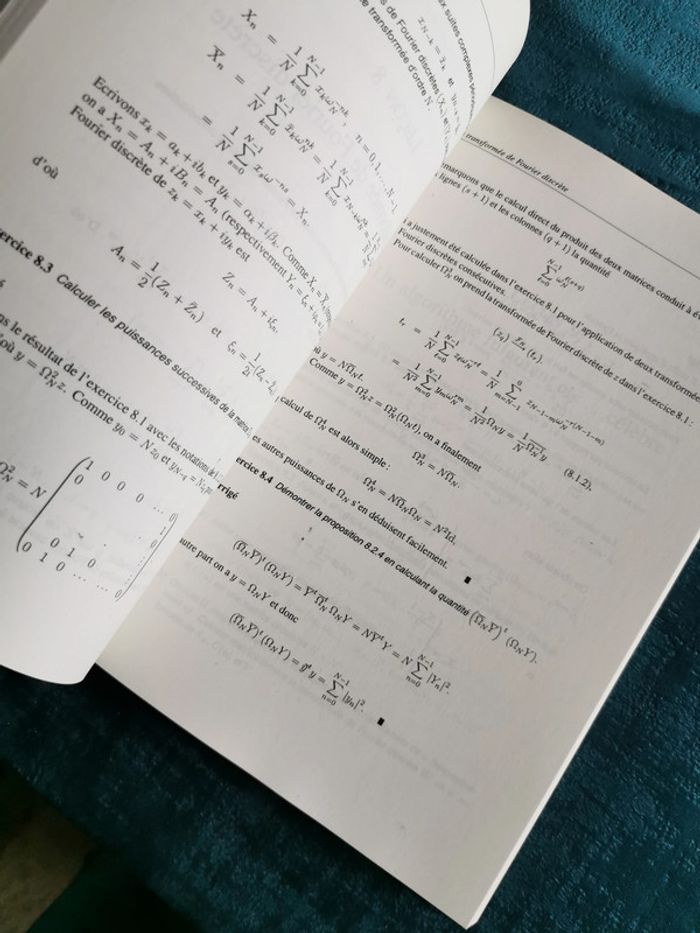 ux suites complexes périod
x_{N-k} = \bar{x}_k et
es de Fourier discrètes (X_n) et (Y_n
e transformée d'ordre N
X_n = \frac{1}{N} \sum_{k=0}^{N-1} x_k \omega_N^{-nk}, n = 0, 1, ..., N-1
\overline{X}_n = \frac{1}{N} \sum_{k=0}^{N-1} \bar{x}_k \omega_N^{nk} = \frac{1}{N} \sum_{k=0}^{N-1} x_{N-k} \omega_N^{nk}
= \frac{1}{N} \sum_{s=0}^{N-1} x_s \omega^{-ns} = X_n.
Ecrivons x_k = a_k + ib_k et y_k = \alpha_k + i\beta_k. Comme X_n = \overline{X}_n
on a X_n = A_n + iB_n = A_n (respectivement Y_n = \xi_n +
Fourier discrète de z_k = x_k + iy_k est
Z_n = A_n + i\xi_n.
d'où
A_n = \frac{1}{2}(Z_n + \overline{Z}_n) et \xi_n = \frac{1}{2i}(Z_n - \overline{Z}_n)
ercice 8.3 Calculer les puissances successives de la matrice
é
ns le résultat de l'exercice 8.1 avec les notations de
où y = \Omega_N^2 z. Comme y_0 = N z_0 et y_{N-q} = N z_q
\Omega_N^2 = N
1 0 0 0 ... 0
0
1
0
0 1 0
0 1 0 ... 0
transformée de Fourier discrète
marquons que le calcul direct du produit des deux matrices conduit à év
lignes (s + 1) et les colonnes (q + 1) la quantité
\sum_{\ell=0}^{N-1} \omega_N^{\ell(s+q)}
a justement été calculée dans l'exercice 8.1 pour l'application de deux transformée
Fourier discrètes consécutives.
Pour calculer \Omega_N^3 on prend la transformée de Fourier discrète de z dans l'exercice 8.1 :
(z_q) \xrightarrow{\mathcal{F}_N} (t_r).
t_r = \frac{1}{N} \sum_{\ell=0}^{N-1} z_\ell \omega_N^{-r\ell} = \frac{1}{N} \sum_{m=N-1}^{0} z_{N-1-m} \omega_N^{-r(N-1-m)}
= \frac{1}{N^3} \sum_{m=0}^{N-1} y_m \omega_N^{rm} = \frac{1}{N^3} \Omega_N y = \frac{1}{N^2} \overline{\Omega}_N^{-1} y (8.1.2),
où y = N \overline{\Omega}_N t.
Comme y = \Omega_N^2 z = \Omega_N^2 (\Omega_N t), on a finalement
\Omega_N^3 = N \overline{\Omega}_N.
calcul de \Omega_N^4 est alors simple :
\Omega_N^4 = N \overline{\Omega}_N \Omega_N = N^2 Id.
es autres puissances de \Omega_N s'en déduisent facilement. ■
ercice 8.4 Démontrer la proposition 8.2.4 en calculant la quantité (\overline{\Omega}_N \overline{Y})^t (\Omega_N Y).
rrigé
(\overline{\Omega}_N \overline{Y})^t (\Omega_N Y) = \overline{Y}^t \overline{\Omega}_N^t \Omega_N Y = N \overline{Y}^t Y = N \sum_{n=0}^{N-1} |Y_n|^2.
autre part on a y = \Omega_N Y et donc
(\overline{\Omega}_N \overline{Y})^t (\Omega_N Y) = \bar{y}^t y = \sum_{n=0}^{N-1} |y_n|^2. ■